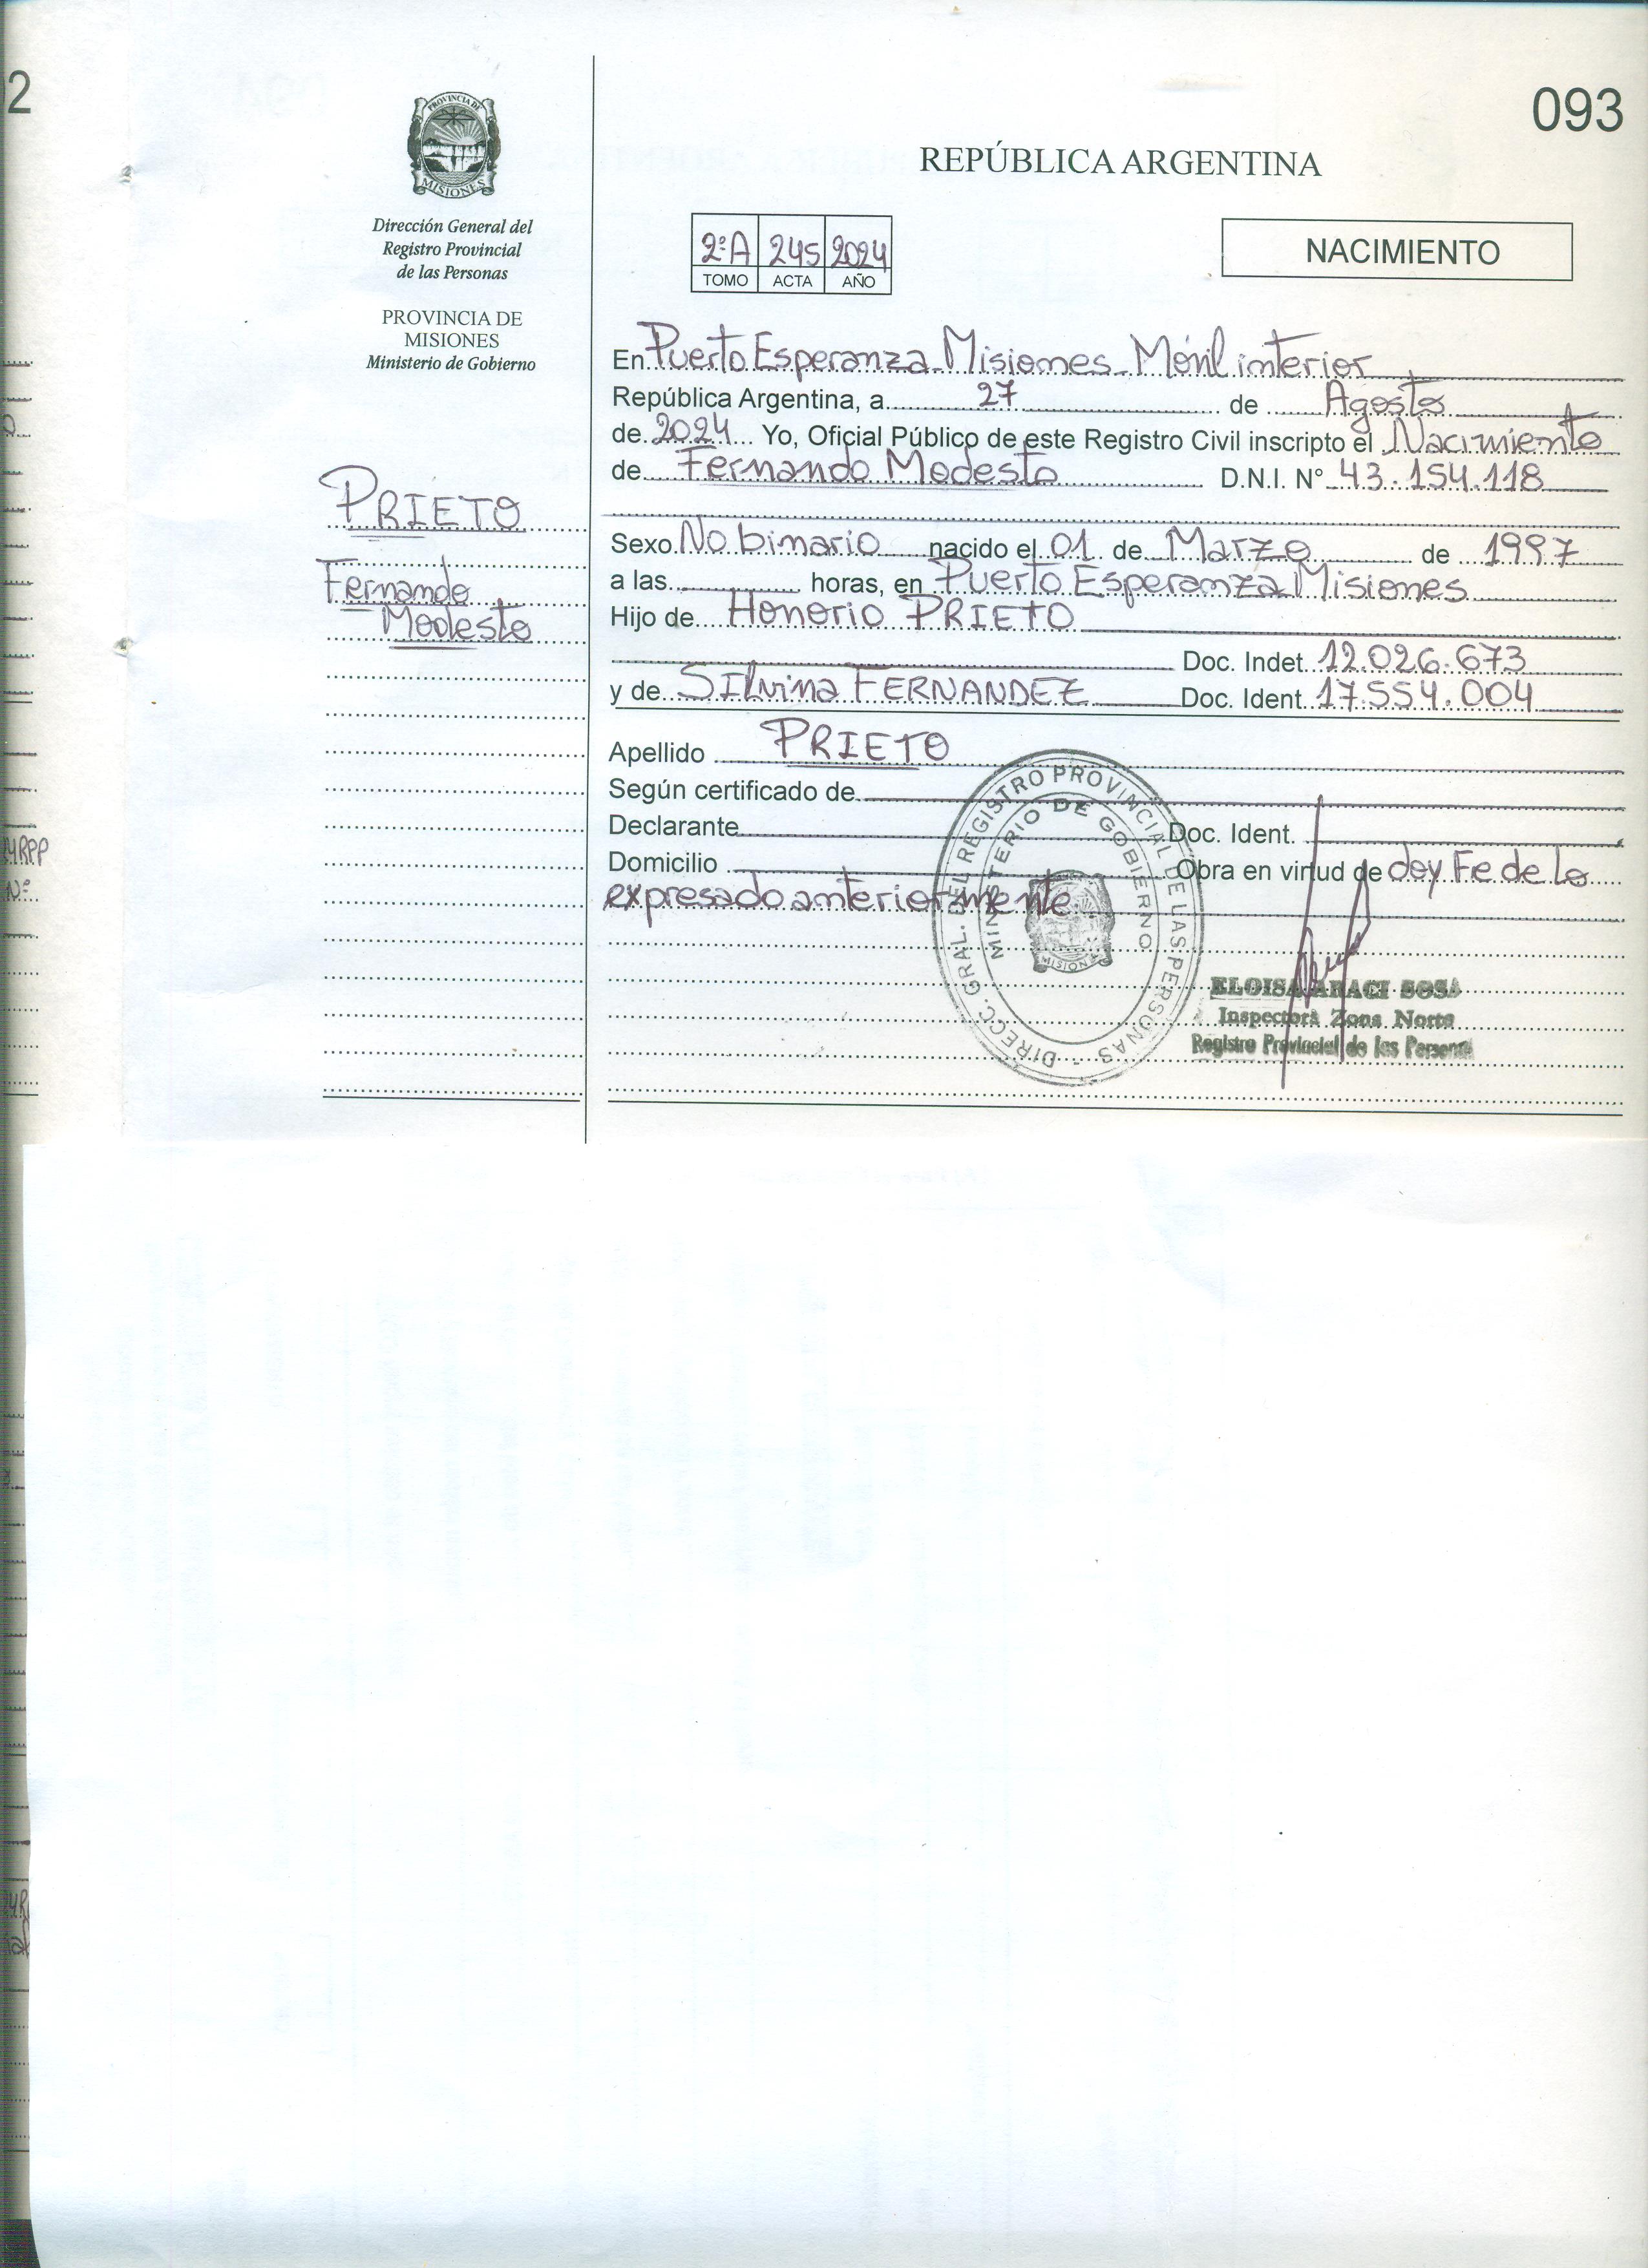 2
093
PROVINCIA DE
MISIONES
Dirección General del
Registro Provincial
de las Personas
PROVINCIA DE
MISIONES
Ministerio de Gobierno
REPÚBLICA ARGENTINA
2ºA 245 2024
TOMO ACTA AÑO
NACIMIENTO
En Puerto Esperanza Misiones Móvil interior
República Argentina, a 27 de Agosto
de 2024 Yo, Oficial Público de este Registro Civil inscripto el Nacimiento
de Fernando Modesto D.N.I. N° 43.154.118
Sexo No binario nacido el 01 de Marzo de 1997
a las horas, en Puerto Esperanza Misiones
Hijo de Honorio PRIETO
Doc. Indet. 12.026.673
y de Silvina FERNANDEZ Doc. Ident. 17.554.004
Apellido PRIETO
Según certificado de
Declarante Doc. Ident.
Domicilio Obra en virtud de doy Fe de lo
expresado anteriormente
PRIETO
Fernando
Modesto
DIRECC. GRAL. DEL REGISTRO PROVINCIAL DE LAS PERSONAS -
MINISTERIO DE GOBIERNO
MISIONES
ELOISA ARACI SOSA
Inspectora Zona Norte
Registro Provincial de las Personas
MRPP
Nº